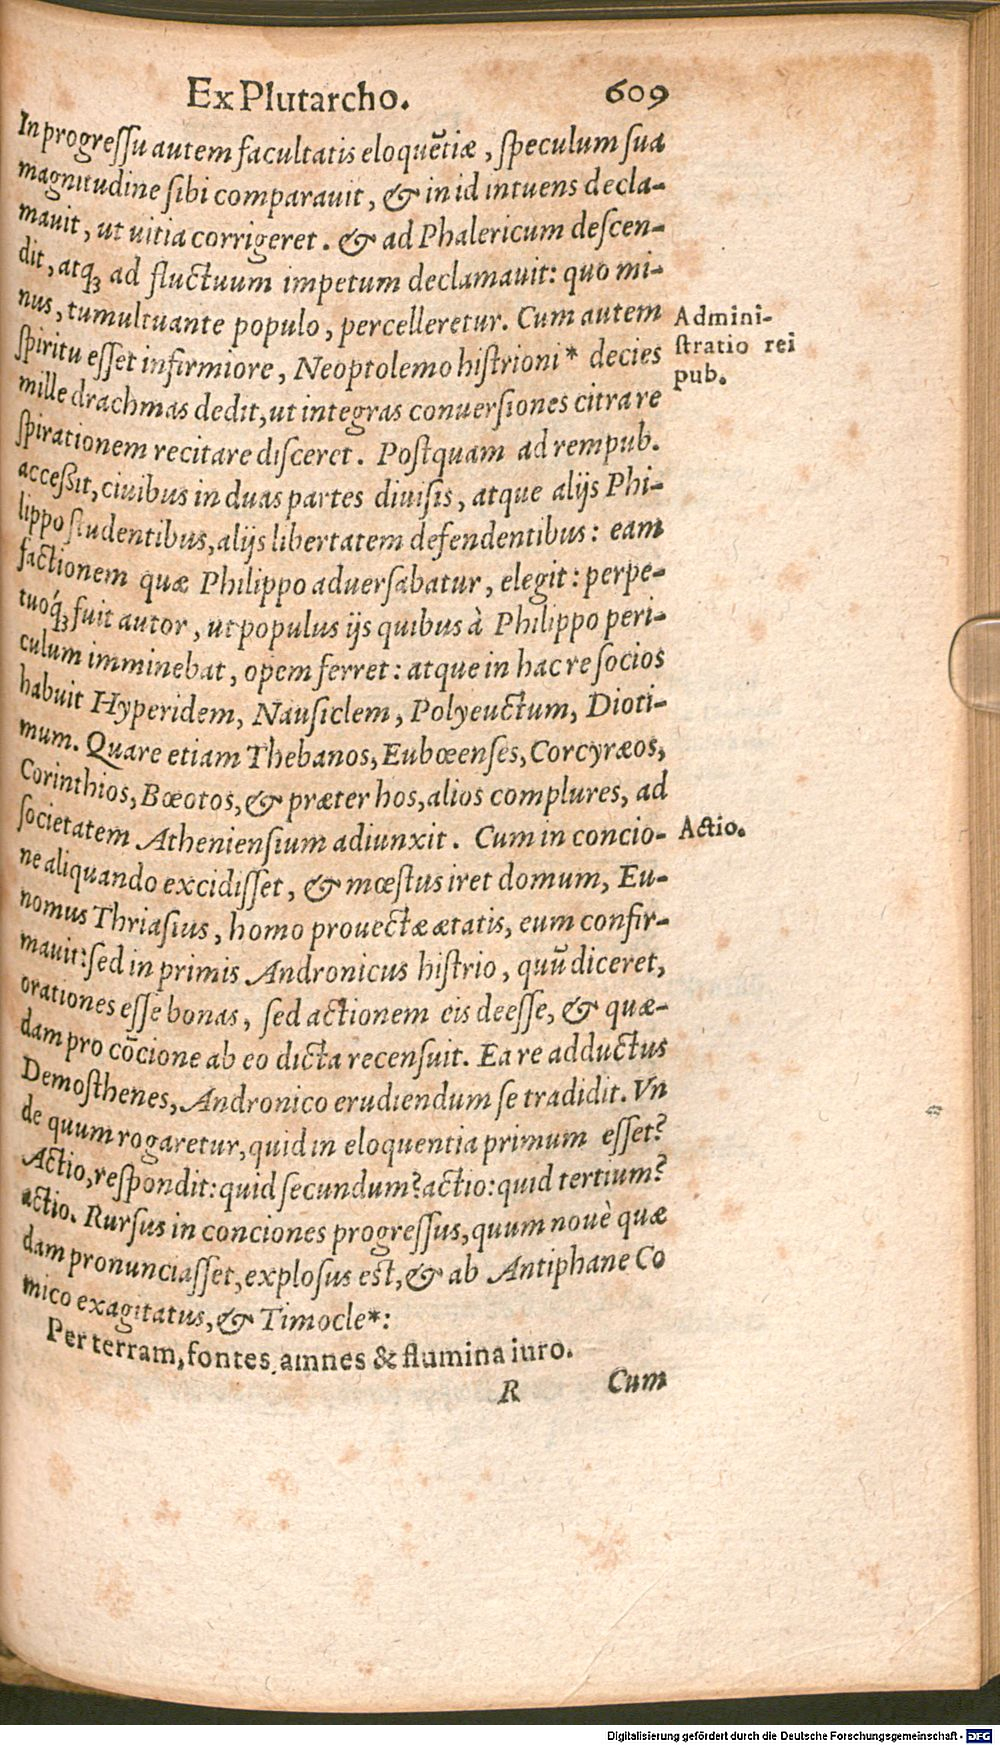 Ex Plutarcho. 609
In progressu autem facultatis eloquētiæ, speculum sua
magnitudine sibi comparauit, & in id intuens decla-
mauit, ut uitia corrigeret. & ad Phalericum descen-
dit, atq; ad fluctuum impetum declamauit: quo mi-
nus, tumultuante populo, percelleretur. Cum autem
Admini-
spiritu esset infirmiore, Neoptolemo histrioni* decies
stratio rei
mille drachmas dedit, ut integras conuersiones citra re
pub.
spirationem recitare disceret. Postquam ad rempub.
accessit, ciuibus in duas partes diuisis, atque alijs Phi-
lippo studentibus, alijs libertatem defendentibus: eam
factionem quæ Philippo aduersabatur, elegit: perpe-
tuóq; fuit autor, ut populus ijs quibus à Philippo peri-
culum imminebat, opem ferret: atque in hac re socios
habuit Hyperidem, Nausiclem, Polyeuctum, Dioti-
mum. Quare etiam Thebanos, Eubœenses, Corcyræos,
Corinthios, Bœotos, & præter hos, alios complures, ad
societatem Atheniensium adiunxit. Cum in concio-
Actio.
ne aliquando excidisset, & mœstus iret domum, Eu-
nomus Thriasius, homo prouectæ ætatis, eum confir-
mauit: sed in primis Andronicus histrio, quū diceret,
orationes esse bonas, sed actionem eis deesse, & quæ-
dam pro cōcione ab eo dicta recensuit. Ea re adductus
Demosthenes, Andronico erudiendum se tradidit. Vn
de quum rogaretur, quid in eloquentia primum esset?
Actio, respondit: quid secundum? actio: quid tertium?
actio. Rursus in conciones progressus, quum nouè quæ
dam pronunciasset, explosus est, & ab Antiphane Co
mico exagitatus, & Timocle*:
Per terram, fontes, amnes & flumina iuro.
R Cum
Digitalisierung gefördert durch die Deutsche Forschungsgemeinschaft - DFG